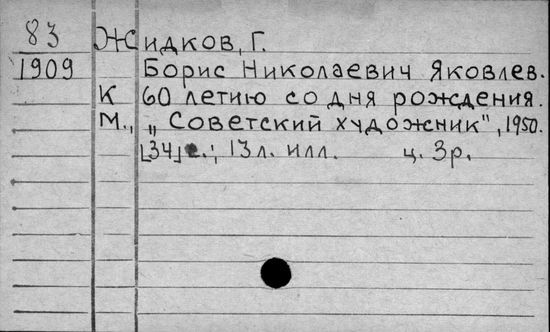 83 Жидков, Г.
1909 Борис Николаевич Яковлев.
К 60 летию со дня рождения.
М., „Советский художник", 1950.
[34] с.; 13 л. илл. ц. 3р.